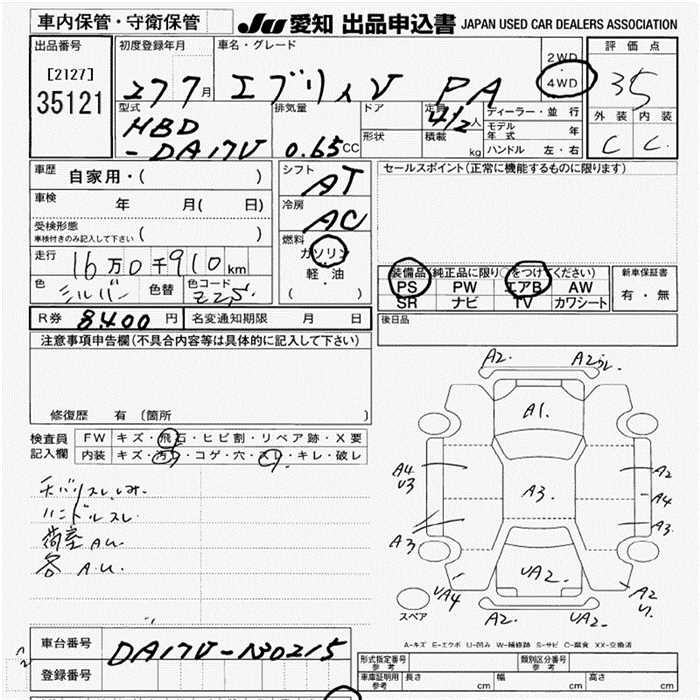 車内保管・守衛保管
JU 愛知 出品申込書 JAPAN USED CAR DEALERS ASSOCIATION
出品番号
[2127]
35121
初度登録年月
車名・グレード
27 7月 エブリィV PA
2WD
・
4WD
評価点
35
外装 内装
C C
型式
HBD
-DA17V
排気量
0.65CC
ドア
形状
定員
4/2人
積載
kg
ディーラー・並行
モデル年式 年
ハンドル 左・右
車歴 自家用・( )
車検 年 月( 日)
受検形態
車検付きのみ記入して下さい ( )
走行 16万0千910km
色 シルバー 色替 色コード Z2S
シフト AT
冷房 AC
燃料
ガソリン
軽・油
( )
セールスポイント(正常に機能するものに限ります)
装備品(純正品に限り○をつけてください)
PS PW エアB AW
SR ナビ TV カワシート
新車保証書
有・無
R券 8,400円 名変通知期限 月 日
後日品
注意事項申告欄(不具合内容等は具体的に記入して下さい)
修復歴 有 (箇所
検査員
記入欄
FW キズ・飛石・ヒビ割・リペア跡・X要
内装 キズ・汚れ・コゲ・穴・スレ・キレ・破レ
ハンドルスレ
荷室 AU
各 A.U.
A2. A2
A1.
A4
U3
A2
A4
A3.
A3
A3.
UA4
UA2.
A2
スペア
A2. UA2.
A-キズ E-エクボ U-凹み W-補修跡 S-サビ C-腐食 XX-交換済
車台番号 DA17V-130215
登録番号
形式指定番号
参考
類別区分番号
参考
車庫証明用
参考
長さ cm 幅 cm 高さ cm